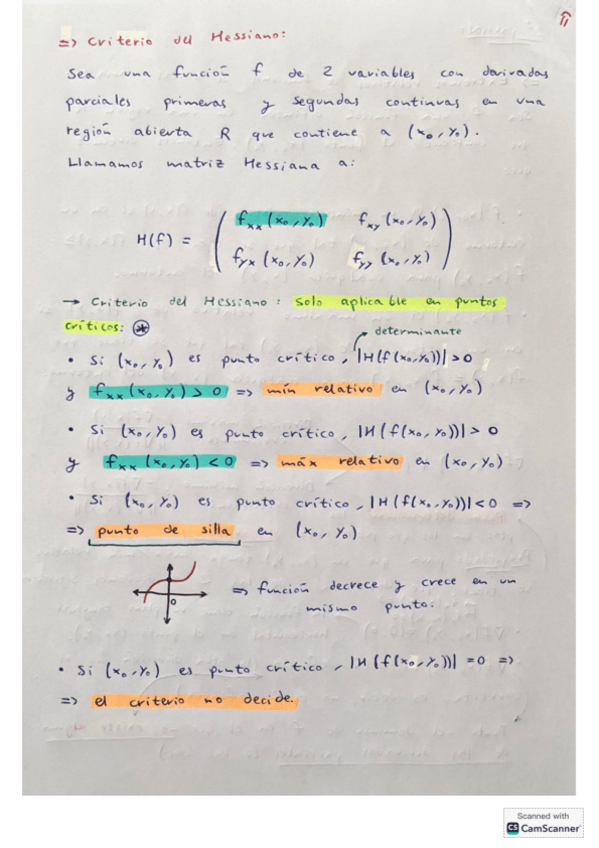 11
=> Criterio del Hessiano:
Sea una función f de 2 variables con derivadas
parciales primeras y segundas continuas en una
región abierta R que contiene a (x₀, y₀).
Llamamos matriz Hessiana a:
fₓₓ (x₀, y₀) fₓᵧ (x₀, y₀)
H(f) =
fᵧₓ (x₀, y₀) fᵧᵧ (x₀, y₀)
→ Criterio del Hessiano: Solo aplicable en puntos
críticos: *
determinante
• Si (x₀, y₀) es punto crítico, |H(f(x₀, y₀))| > 0
y fₓₓ (x₀, y₀) > 0 => mín relativo en (x₀, y₀)
• Si (x₀, y₀) es punto crítico, |H(f(x₀, y₀))| > 0
y fₓₓ (x₀, y₀) < 0 => máx relativo en (x₀, y₀)
• Si (x₀, y₀) es punto crítico, |H(f(x₀, y₀))| < 0 =>
=> punto de silla en (x₀, y₀)
=> función decrece y crece en un
0
mismo punto.
• Si (x₀, y₀) es punto crítico, |H(f(x₀, y₀))| = 0 =>
=> el criterio no decide.
Scanned with
CS CamScanner